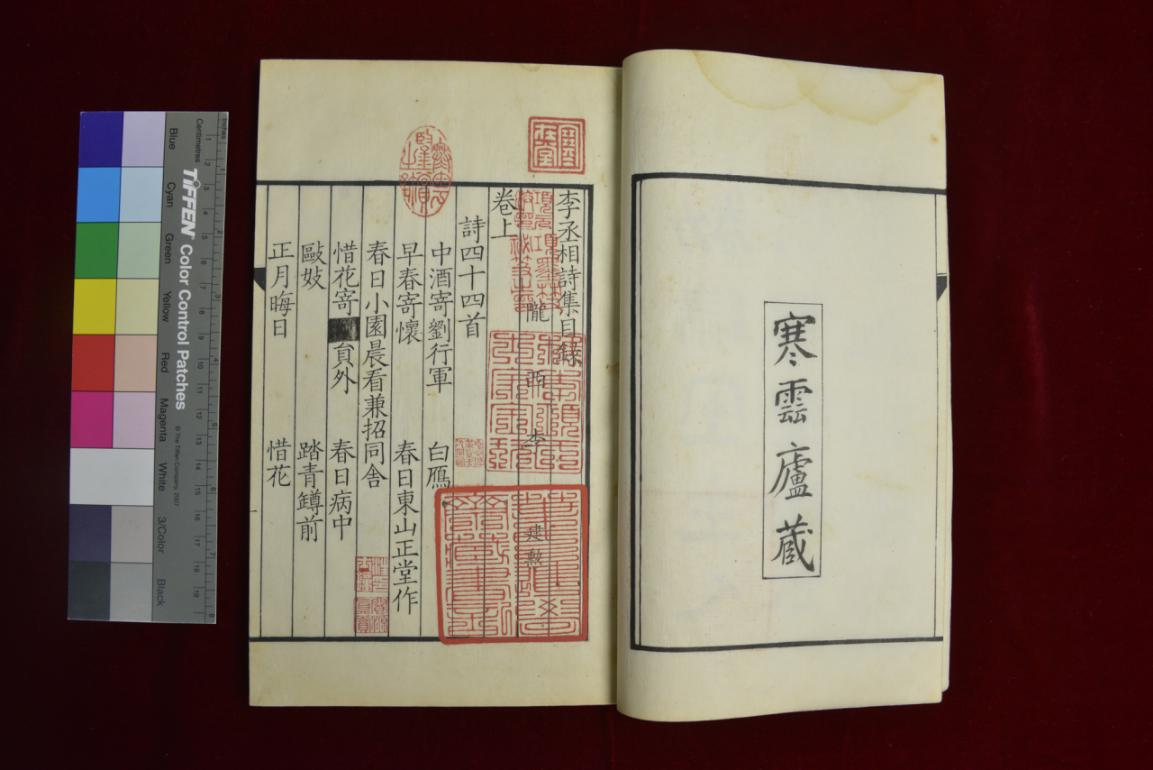 寒雲廬藏
李丞相詩集目録
隴西李
建勲
卷上
詩四十四首
中酒寄劉行軍 白鴈
早春寄懷 春日東山正堂作
春日小園晨看兼招同舍
惜花寄 員外 春日病中
毆妓 踏青罇前
正月晦日 惜花
Centimetres
Inches
TIFFEN Color Control Patches
© The Tiffen Company, 2007
Blue
Cyan
Green
Yellow
Red
Magenta
White
3/Color
Black